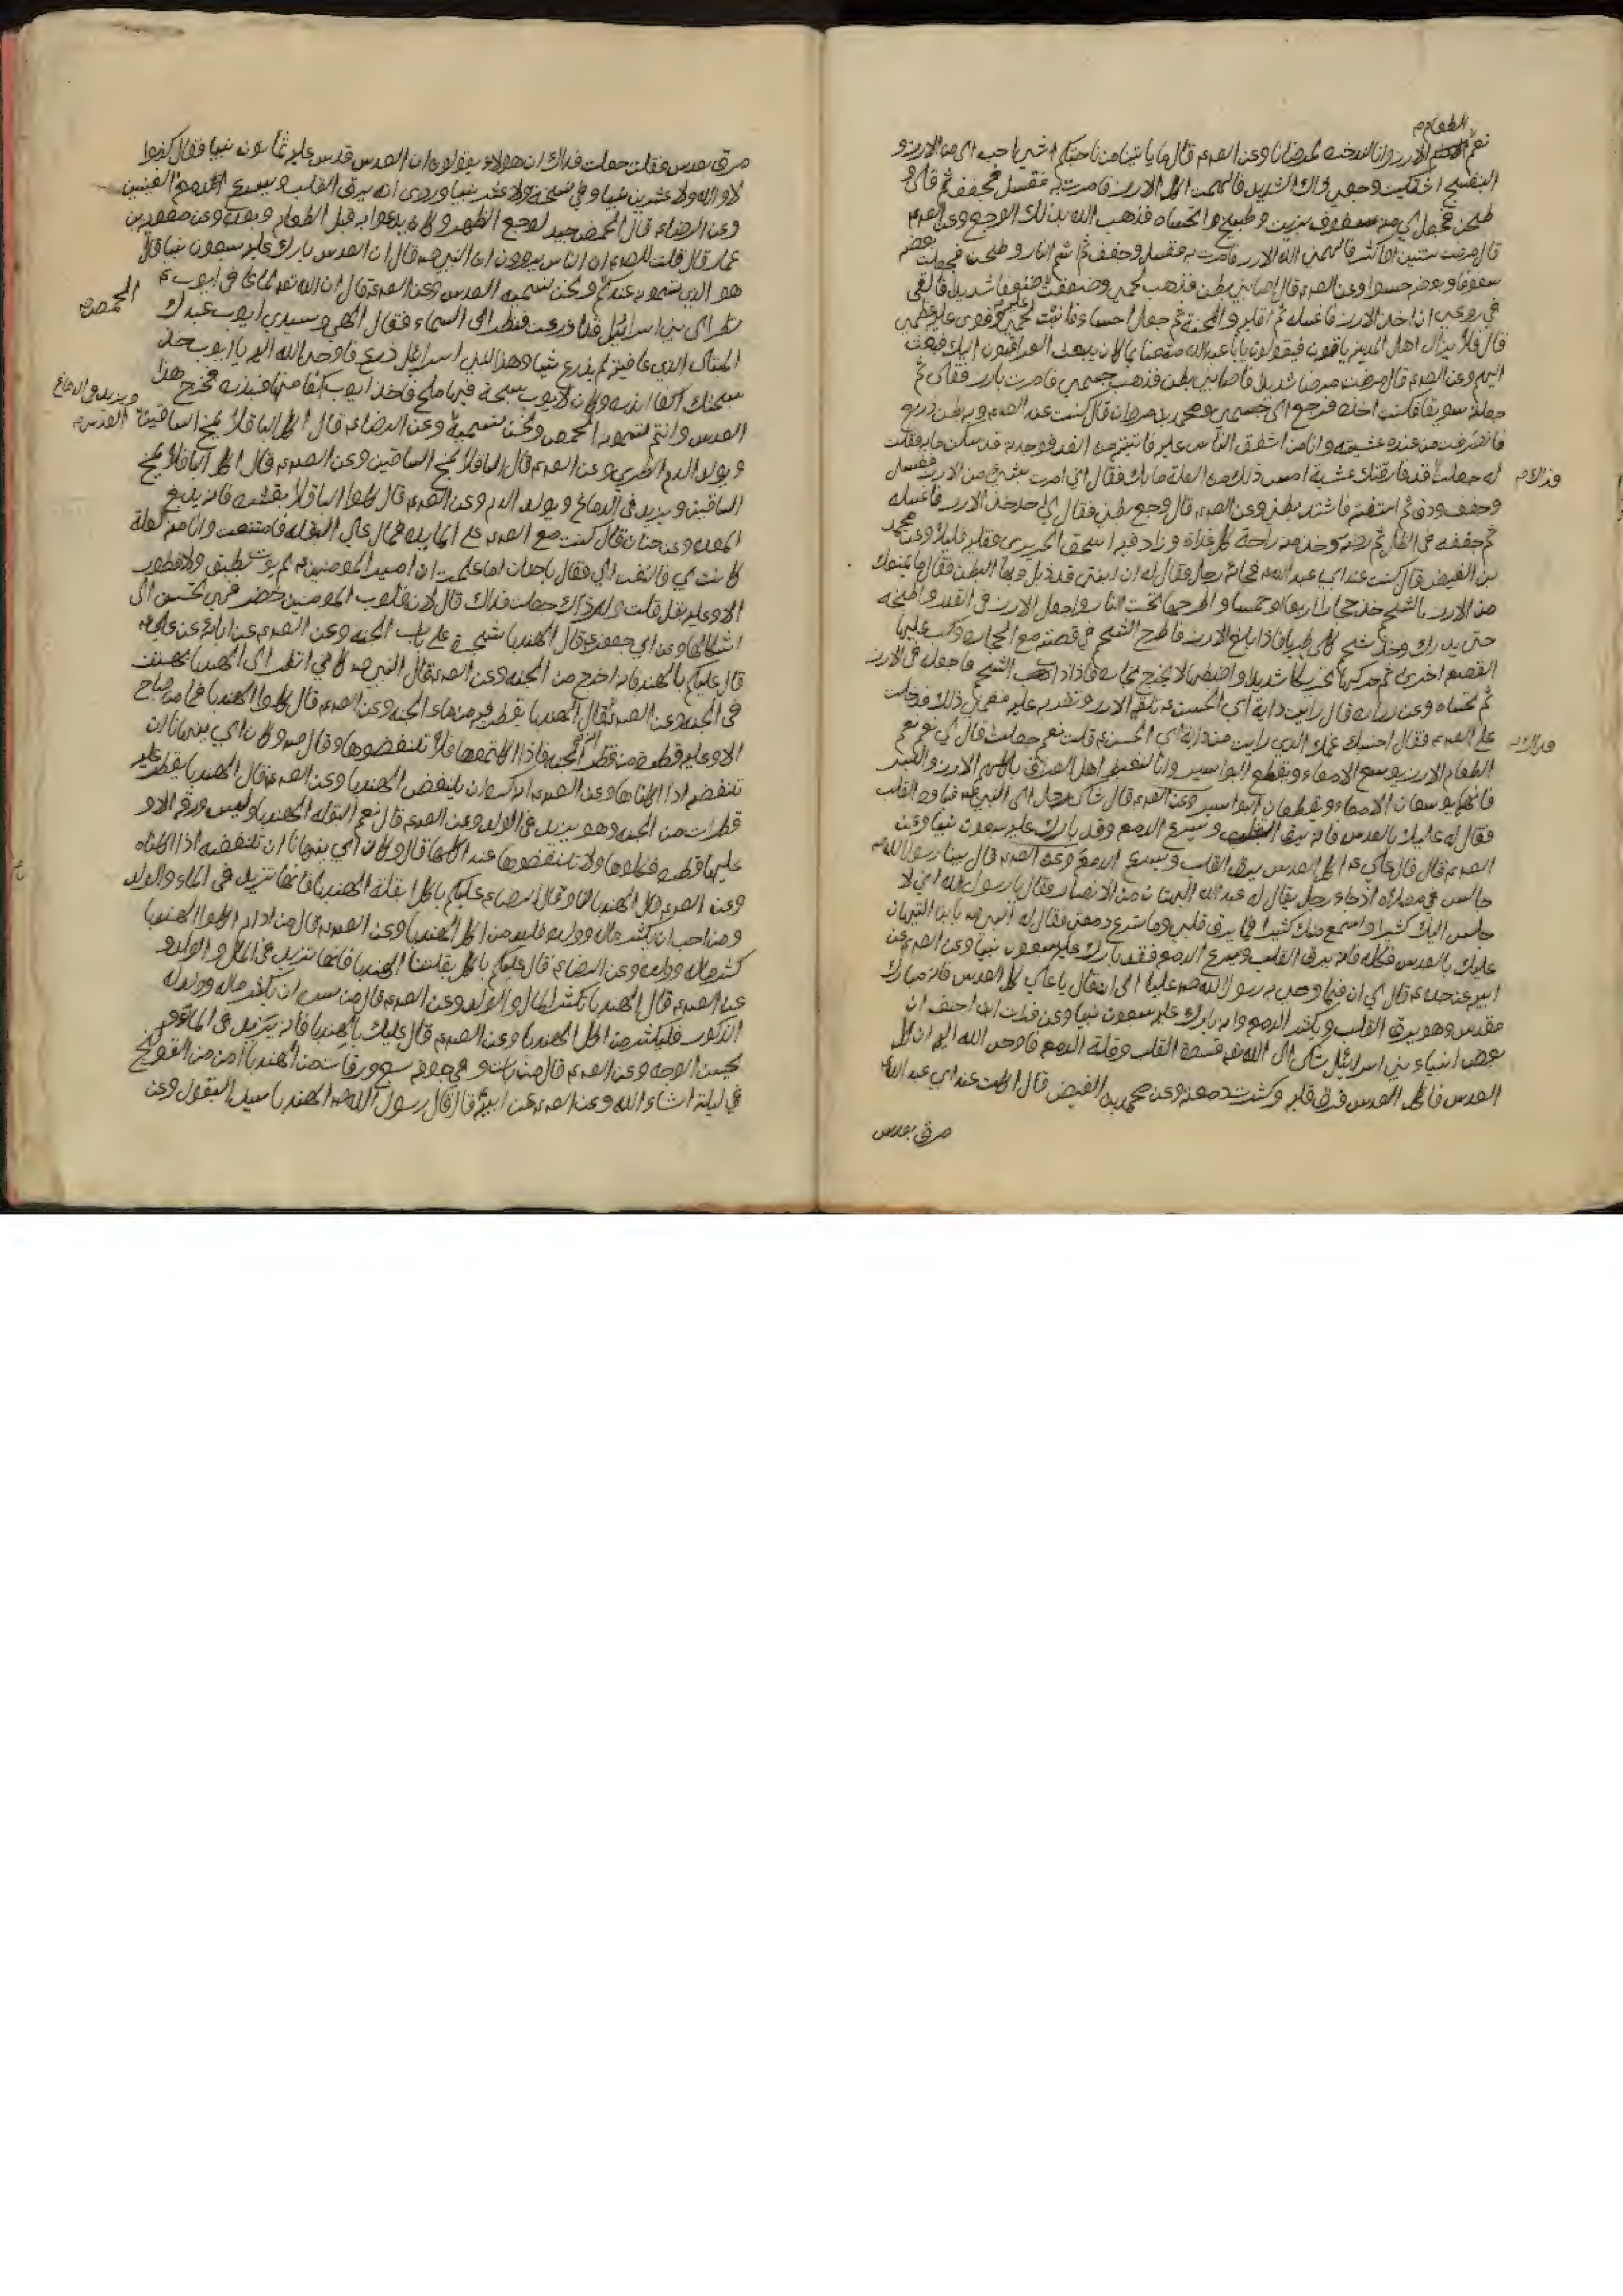 الطعام
نعم الارز وانا لندخره لمرضانا وعن الص ع قال ما ياتينا من ناحيتكم شئ احب الي من الارز و
البنفسج اني اشتكيت وجعي ذاك الشديد فالهمت اكل الارز فامرت به فغسل فجفف ثم قلي و
طحن فجعل لي منه سفوف بزيت وطبيخ اتحساه فذهب الله بذلك الوجع وعن الص ع
قال مرضت سنتين او اكثر فالهمني الله الارز فامرت به فغسل وجفف ثم اشم النار وطحن فجعلت بعضه
سفوفا وبعضه حسوا وعن الص ع قال اصابني بطن فذهب لحمي وضعفت عليه ضعفا شديدا فالقي
في روعي ان اخذ الارز فاغسله ثم اقليه واطحنه ثم اجعله حساء فنبت عليه لحمي وقوى عليه عظمي
قال فلا يزال اهل المدينة ياتون فيقولون يا ابا عبد الله متعنا بما كان يبعث العراقيون اليك فبعثت
اليهم وعن الص ع قال مرضت مرضا شديدا فاصابني بطن فذهب جسمي فامرت بارز فقلي ثم
جعل سويقا فكنت اخذه فرجع الي جسمي
فانصرفت من عنده عشية وانا من اشفق الناس عليه فاتيته من الغد فوجدته قد سكن ما به فقلت
له جعلت فداك فارقتك عشية امس وبك من العلة ما بك فقال اني امرت بشئ من الارز فغسل
وجفف ودق ثم استففته فاشتد بطني وعن الص ع قال وجع بطني فقال لي احد خذ الارز فاغسله
ثم جففه في الظل ثم رضه وخذ منه راحة كل غداة وزاد فيه اسحق الجريري وقليه قليلا وعن محمد
بن الفيض قال كنت عند ابي عبد الله ع فجاءه رجل فقال له ان ابنتي قد ذبلت وبها البطن فقال ما يمنعك
من الارز بالشحم خذ حجارا اربعا او خمسا واطرحها تحت النار واجعل الارز في القدر واطبخه
حتى يدرك وخذ شحم كلى طريا فاذا بلغ الارز فاطرح الشحم في قصعة مع الحجارة وكب عليها
القصعة اخرى ثم حركها تحريكا شديدا واضبطها لا يخرج بخاره فاذا ذاب الشحم فاجعله في الارز
ثم تحساه وعن زرارة قال رايت داية ابي الحسن ع تلقمه الارز وتضربه عليه فغمني ذلك فدخلت
على الص ع فقال احسبك غمك الذي رايت من داية ابي الحسن ع قلت نعم جعلت فداك قال لي نعم نعم
الطعام الارز يوسع الامعاء ويقطع البواسير وانا لنغبط اهل العراق باكلهم الارز والبسر
فانهما يوسعان الامعاء ويقطعان البواسير وعن الص ع قال شكى رجل الى النبي ص قساوة القلب
فقال له عليك بالعدس فانه يرق القلب ويسرع الدمع وقد بارك عليه سبعون نبيا وعن
الص ع قال قال علي ع اكل العدس يرق القلب ويسرع الدمع وعن الص ع قال بينا رسول الله ص
جالس في مصلاه اذ جاءه رجل يقال له عبد الله التيهان من الانصار فقال يا رسول الله اني لا
جلس اليك كثيرا واسمع منك كثيرا فما يرق قلبي وما تسرع دمعتي فقال له النبي ص يا ابن التيهان
عليك بالعدس فكله فانه يرق القلب ويسرع الدمع فقد بارك عليه سبعون نبيا وعن الص ع عن
ابيه عن جده ع قال كان فيما اوصى به رسول الله ص عليا ع ان قال يا علي كل العدس فانه مبارك
مقدس وهو يرق القلب ويكثر الدمع وانه بارك عليه سبعون نبيا وعن فرات بن احنف ان
بعض انبياء بني اسرائيل شكى الى الله تع قسوة القلب وقلة الدمع فاوحى الله اليه ان كل
العدس فاكل العدس فرق قلبه وكثرت دمعته وعن محمد بن الفيض قال اكلت عند ابي عبد الله ع
مرق بعدس
فداك
مرق بعدس فقلت جعلت فداك ان هؤلاء يقولون ان العدس قدس عليه ثمانون نبيا فقال كذبوا
لا والله ولا عشرين نبيا وفي نسخة ولا عشر نبيا وروى انه يرق القلب ويسرع الدمع العينين
وعن الرضا ع قال الحمص جيد لوجع الظهر وكان يدعو به قبل الطعام وبعده وعن معوية بن
عمار قال قلت للص ع ان الناس يروون ان النبي ص قال ان العدس بارك عليه سبعون نبيا قال
هو الذي تسمونه عندكم الحمص ونحن نسميه العدس وعن الص ع قال ان الله تع لما عافى ايوب ع
نظر الى بني اسرائيل قد ازرعت فنظر الى السماء فقال الهي وسيدي ايوب عبدك
المبتلى الذي عافيته لم يزرع شيئا وهذا لبني اسرائيل زرع فاوحى الله اليه يا ايوب خذ من
سبحتك كفا فابذره وكان لايوب سبحة فيها ملح فاخذ ايوب كفا منها فبذره فخرج هذا
العدس وانتم تسمونه الحمص ونحن نسميه العدس وعن الرضا ع قال اكل الباقلا يمخ الساقين ويزيد في الدماغ
ويولد الدم الطري وعن الص ع قال الباقلا يمخ الساقين وعن الص ع قال اكل الباقلا يمخ
الساقين ويزيد في الدماغ ويولد الدم وعن الص ع قال كلوا الباقلا بقشره فانه يدبغ
المعدة وعن حنان قال كنت مع الص ع على المائدة فمال على البقل فامتنعت انا منه لعلة
كانت بي فالتفت الي فقال يا حنان اما علمت ان امير المؤمنين ع لم يوت بطبق ولا فطور
الا وعليه بقل قلت ولم ذاك جعلت فداك قال لان قلوب المومنين خضر فهي تحن الى
اشكالها وعن ابي جعفر ع قال الهندبا شجرة على باب الجنة وعن الص ع عن ابائه عن علي ع
قال عليكم بالهندبا فانه اخرج من الجنة وعن الص ع قال قال النبي ص كاني انظر الى الهندبا تهتز
في الجنة وعن الص ع قال الهندبا يقطر فيه من ماء الجنة وعن الص ع قال كلوا الهندبا فما من صباح
الا وعليه قطرة من قطر الجنة فاذا اكلتموها فلا تنفضوها وقال ص وكان ابي ينهانا ان
ننفضه اذا اكلناها وعن الص ع انه كره ان ينفض الهندبا وعن الص ع قال الهندبا يقطر عليه
قطرات من الجنة وهو يزيد في الولد وعن الص ع قال نعم البقلة الهندبا وليس ورقة الا و
عليها قطرة فكلوها ولا تنفضوها عند اكلها قال وكان ابي ينهانا ان ننفضه اذا اكلناه
وعن الص ع قال عليكم باكل بقلة الهندبا فانها تزيد في الماء والولد
ومن احب ان يكثر ماله وولده فليدمن اكل الهندبا وعن الص ع قال من ادام اكل الهندبا
كثر ماله وولده وعن الرضا ع قال عليكم باكل بقلتنا الهندبا فانها تزيد في المال والولد و
عن الص ع قال الهندبا تكثر المال والولد وعن الص ع قال من سره ان يكثر ماله وولده
الذكور فليكثر من اكل الهندبا وعن الص ع قال عليك بالهندبا فانه يزيد في الماء و
يحسن الوجه وعن الص ع قال من بات وفي جوفه سبع ورقات من الهندبا امن من القولنج
في ليلته انشاء الله وعن الص ع عن ابيه ع قال قال رسول الله ص الهندبا سيد البقول وعن